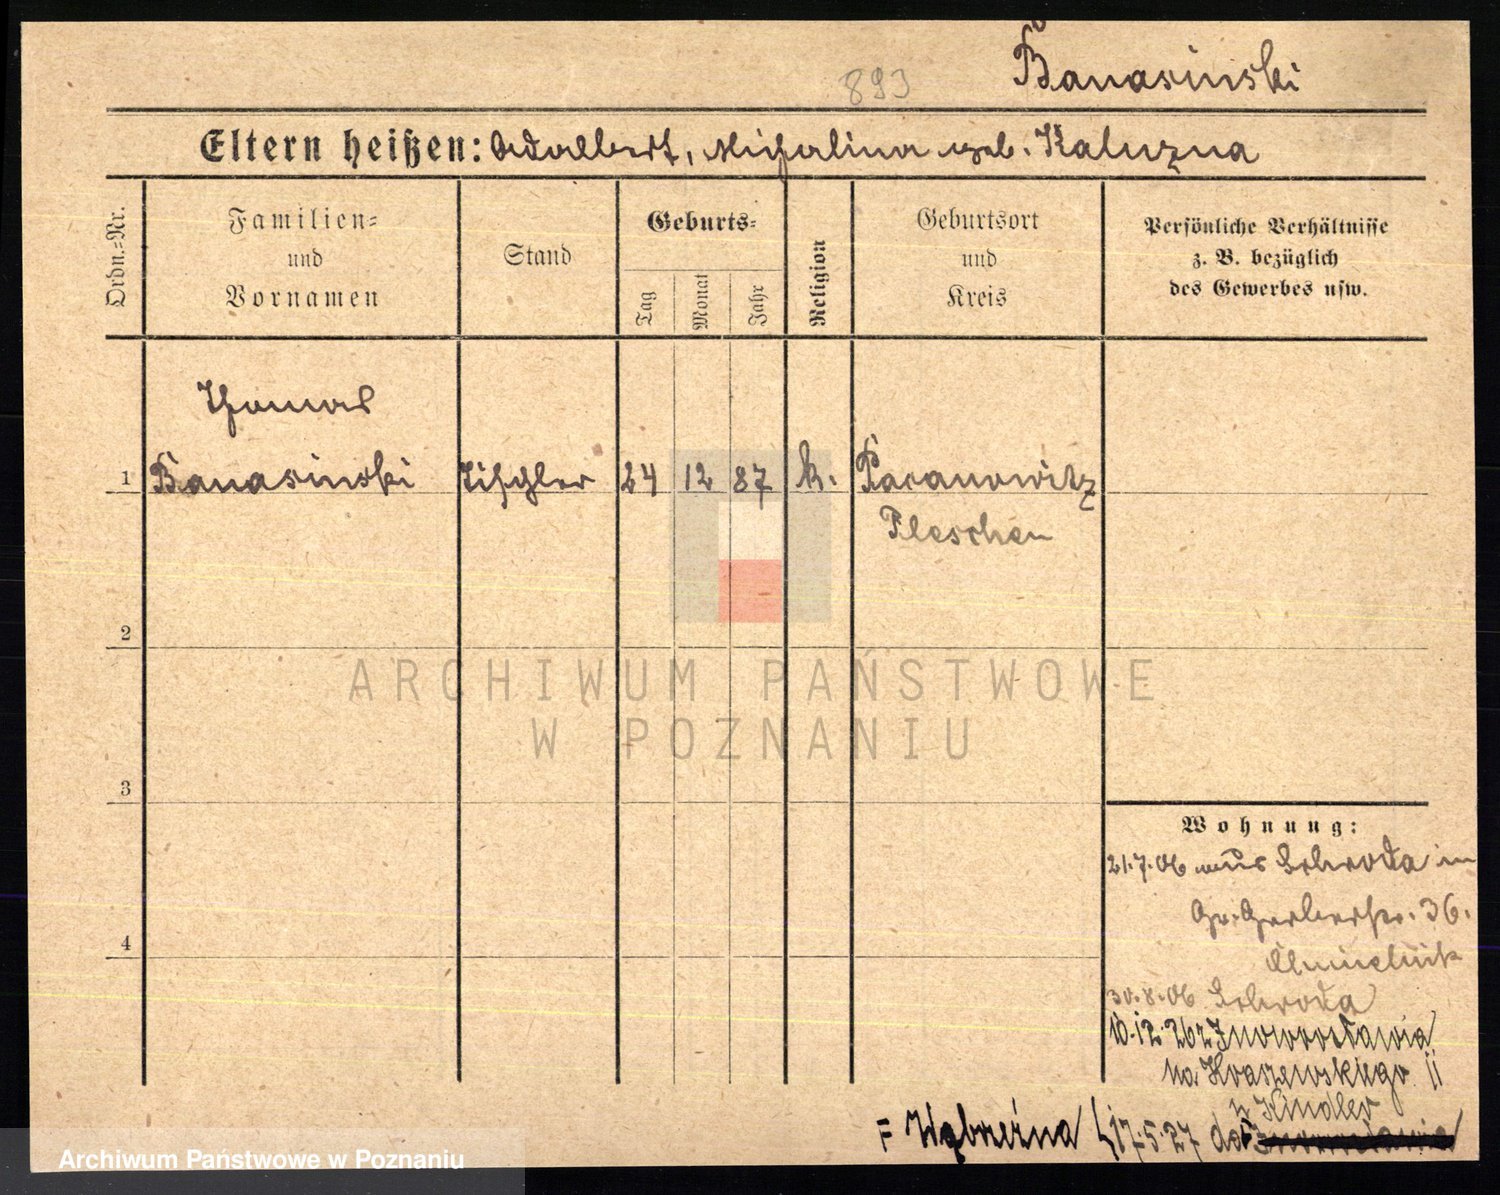 Banasinski
893
Eltern heißen: Adalbert, Michalina geb. Kaluzna
Ordn.=Nr.
Familien=
und
Vornamen
Stand
Geburts=
Tag
Monat
Jahr
Religion
Geburtsort
und
Kreis
Persönliche Verhältnisse
z. B. bezüglich
des Gewerbes usw.
Thomas
1 Banasinski Tischler 24 12 87 k. Pacanowitz
Pleschen
2
3
4
Wohnung:
21.7.06 aus Schroda in
Gr. Gerberstr. 36.
30.8.06 Schroda
10.12.26 z Inowrocławia
na Kraszewskiego 11
z Kindler
= Wąbrzeźna 17.5.27 do Inowrocławia
ARCHIWUM PAŃSTWOWE
W POZNANIU
Archiwum Państwowe w Poznaniu